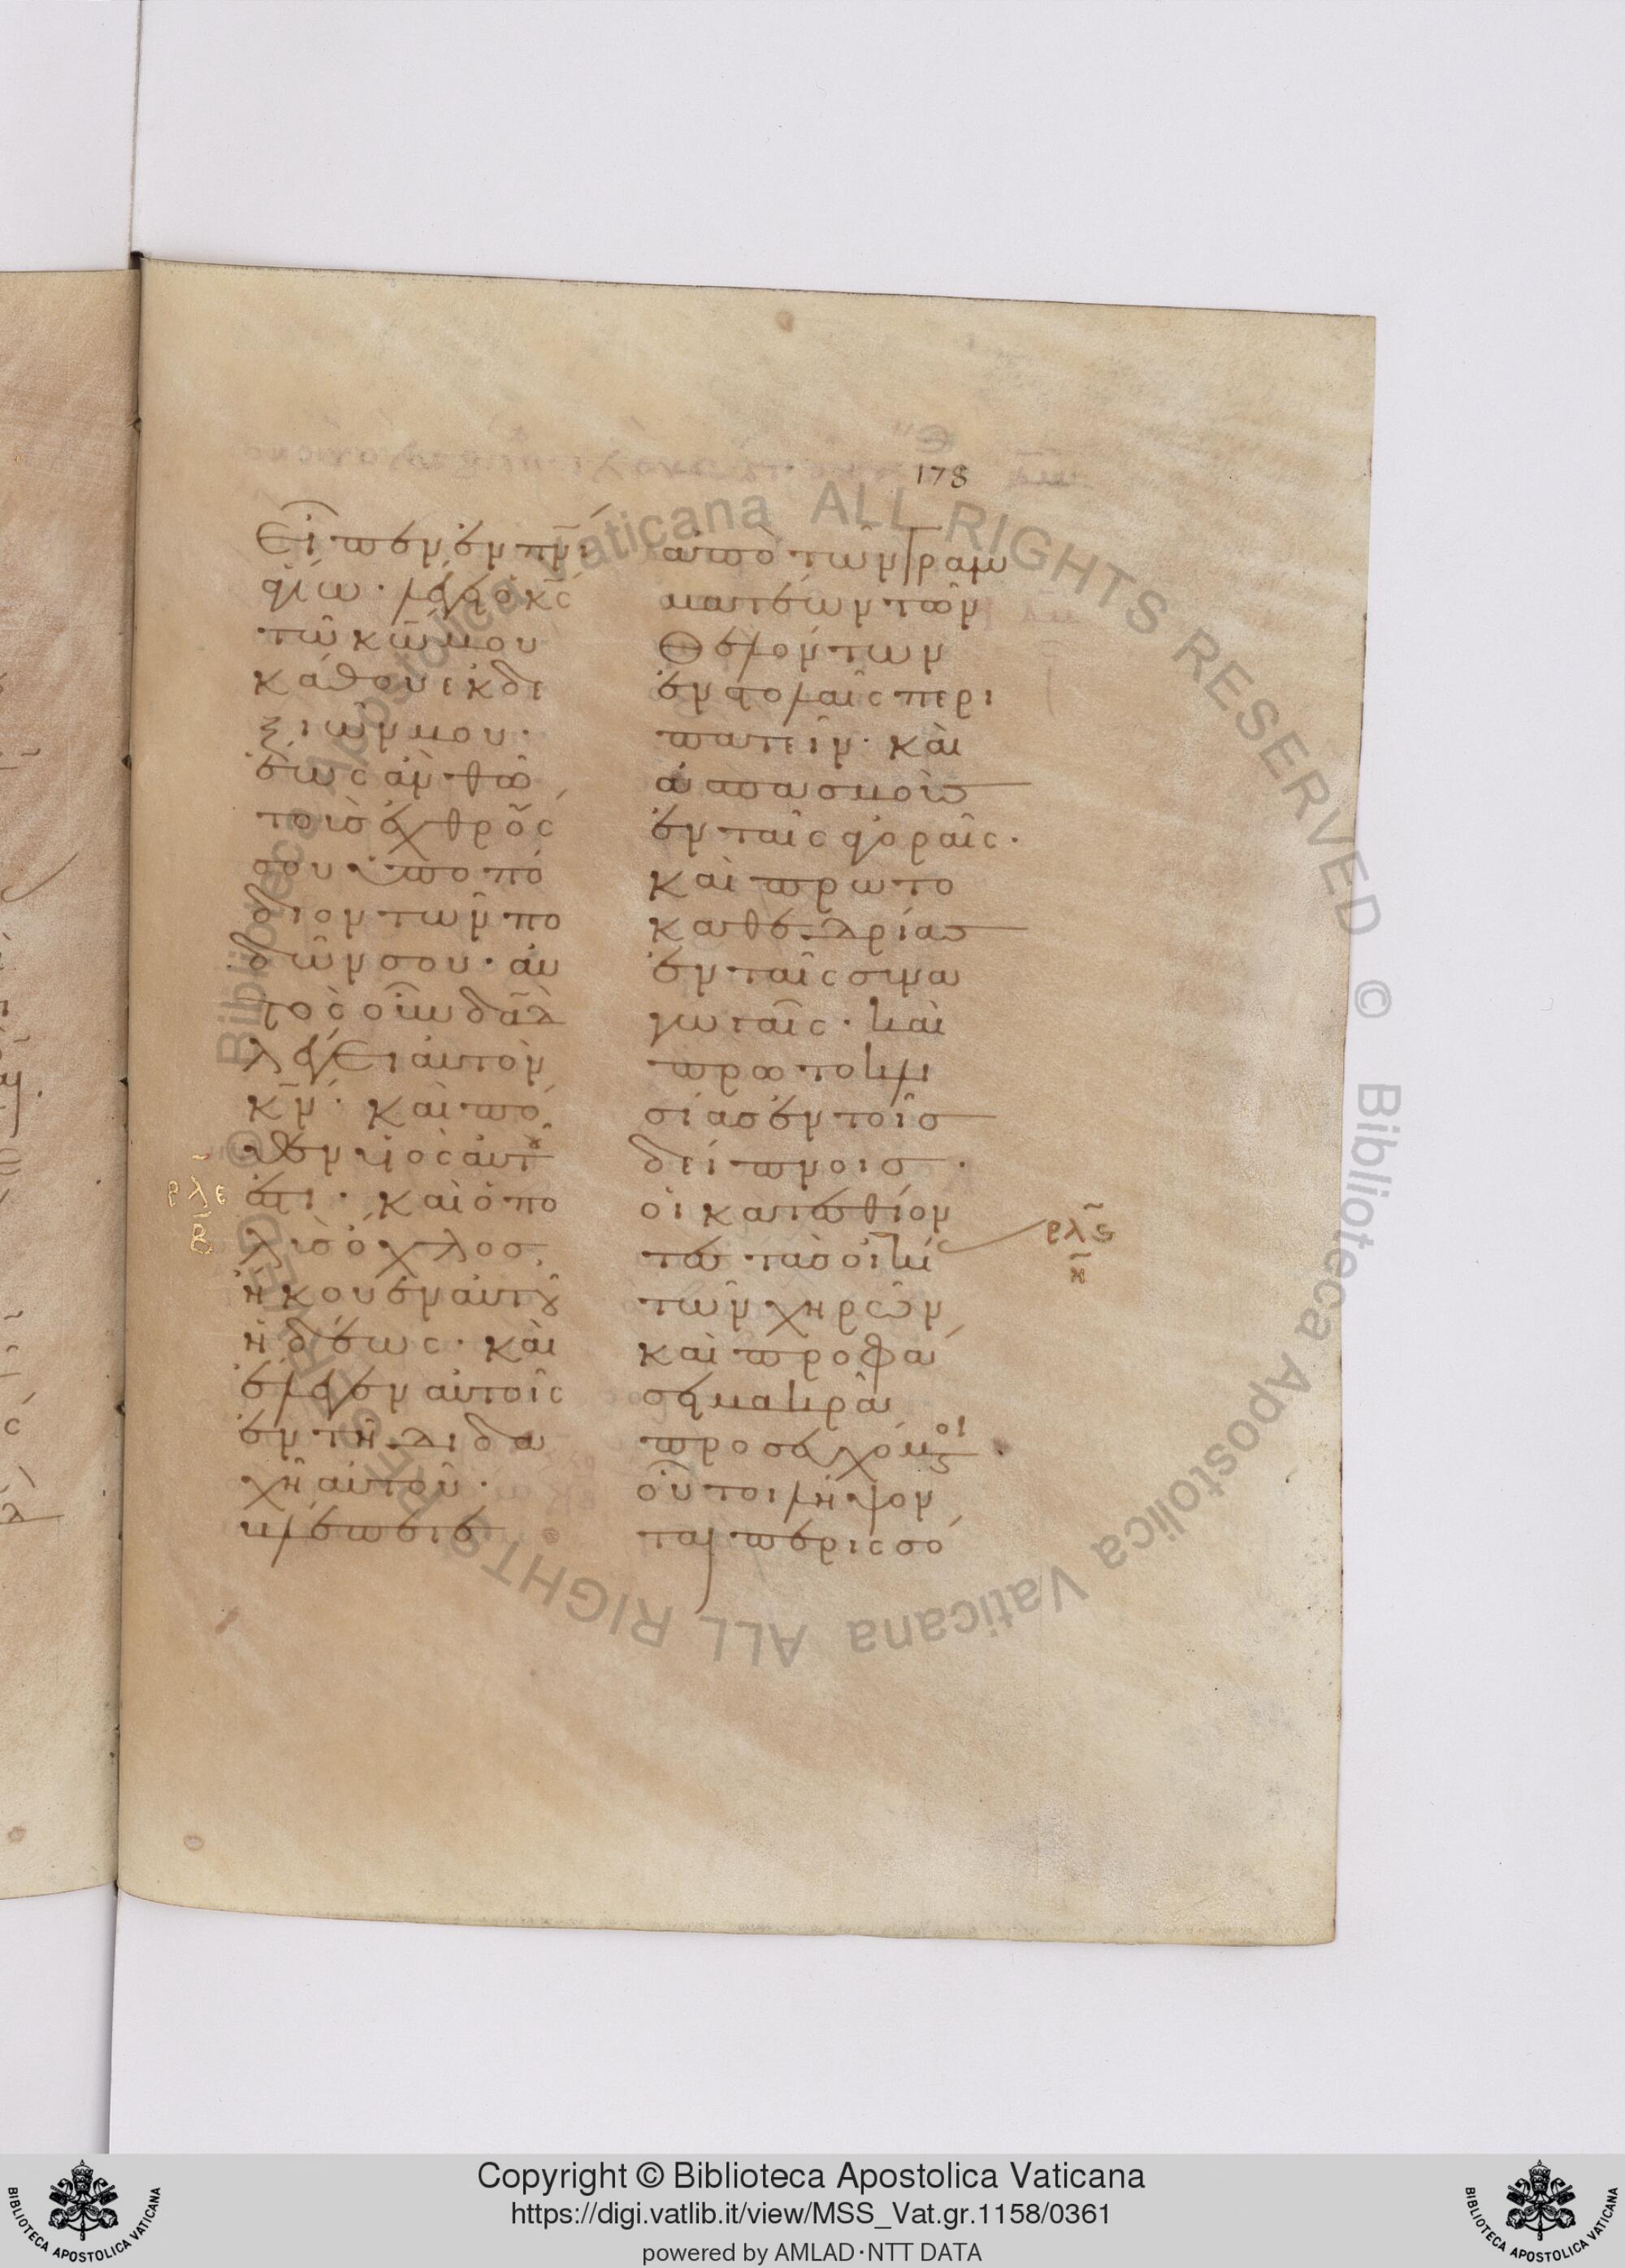 178
εἶπεν ἐν π̅ν̅ι
ἁγίω· λέγει ὁ κ̅ς̅
τῶ κ̅ω̅ μου
κάθου ἐκ δε
ξιῶν μου·
ἕως ἂν θῶ
τοὺς ἐχθρούς
σου ὑποπό
διον τῶν πο
δῶν σου· αὐ
τὸς οὖν δ̅α̅δ̅
λέγει αὐτὸν
κ̅ν̅· καὶ πό
θεν υἱὸς αὐτοῦ
ἐστι· καὶ ὁ πο
λὺς ὄχλος
ἤκουεν αὐτοῦ
ἡδέως· καὶ
ἔλεγεν αὐτοῖς
ἐν τῆ διδα
χῆ αὐτοῦ·
βλέπετε
ρλε
β
ἀπὸ τῶν γραμ
ματέων τῶν
θελόντων
ἐν στολαῖς περι
πατεῖν· καὶ
ἀσπασμοὺς
ἐν ταῖς ἀγοραῖς·
καὶ πρωτο
καθεδρίας
ἐν ταῖς συνα
γωγαῖς· καὶ
πρωτοκλι
σίας ἐν τοῖς
δείπνοις·
οἱ κατεσθίον
τες τὰς οἰκί
τῶν χηρῶν
καὶ προφά
σει μακρᾶ
προσευχόμενοι·
οὗτοι λήψον
ται περισσό
ρλς
η
Copyright © Biblioteca Apostolica Vaticana
https://digi.vatlib.it/view/MSS_Vat.gr.1158/0361
powered by AMLAD·NTT DATA
BIBLIOTECA APOSTOLICA VATICANA
BIBLIOTECA APOSTOLICA VATICANA
© Biblioteca Apostolica Vaticana ALL RIGHTS RESERVED © Biblioteca Apostolica Vaticana ALL RIGHTS RESERVED